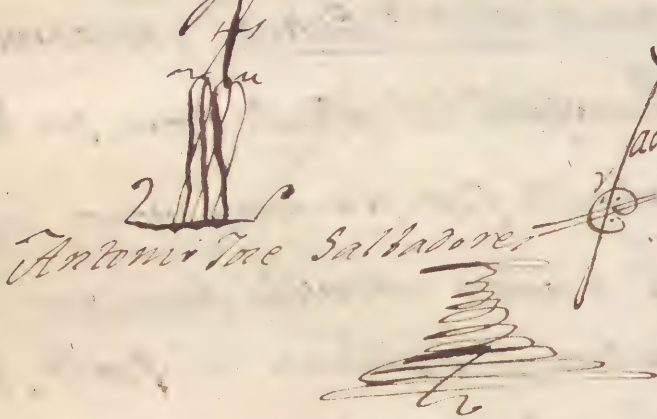 Antonio Jose Salbadores